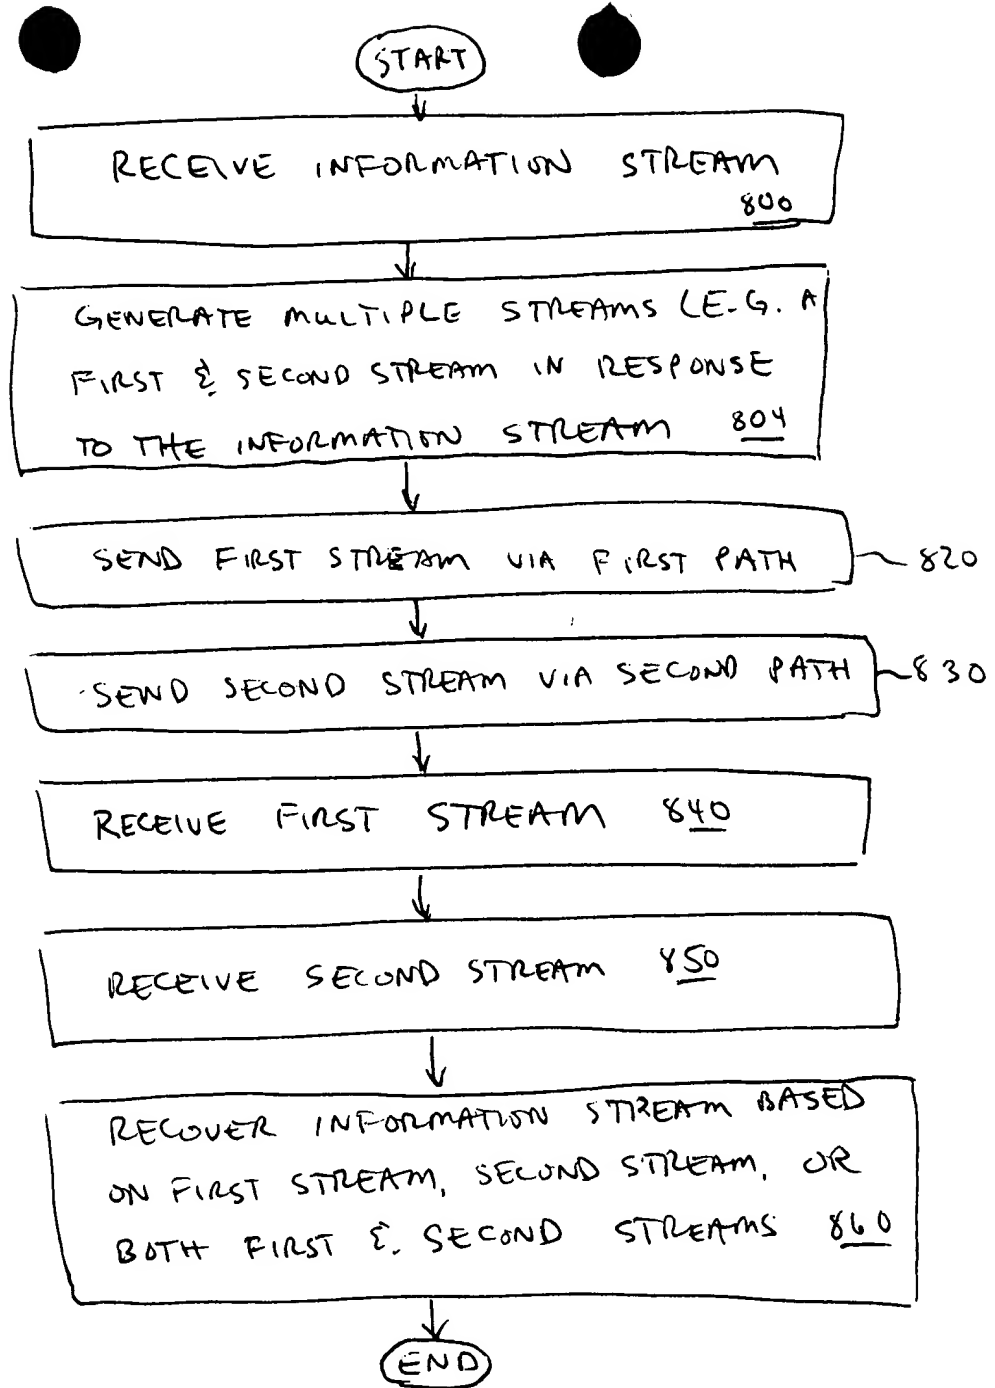 START
RECEIVE INFORMATION STREAM
800
GENERATE MULTIPLE STREAMS (E.G. A
FIRST & SECOND STREAM IN RESPONSE
TO THE INFORMATION STREAM 804
SEND FIRST STREAM VIA FIRST PATH 820
SEND SECOND STREAM VIA SECOND PATH 830
RECEIVE FIRST STREAM 840
RECEIVE SECOND STREAM 850
RECOVER INFORMATION STREAM BASED
ON FIRST STREAM, SECOND STREAM, OR
BOTH FIRST & SECOND STREAMS 860
END